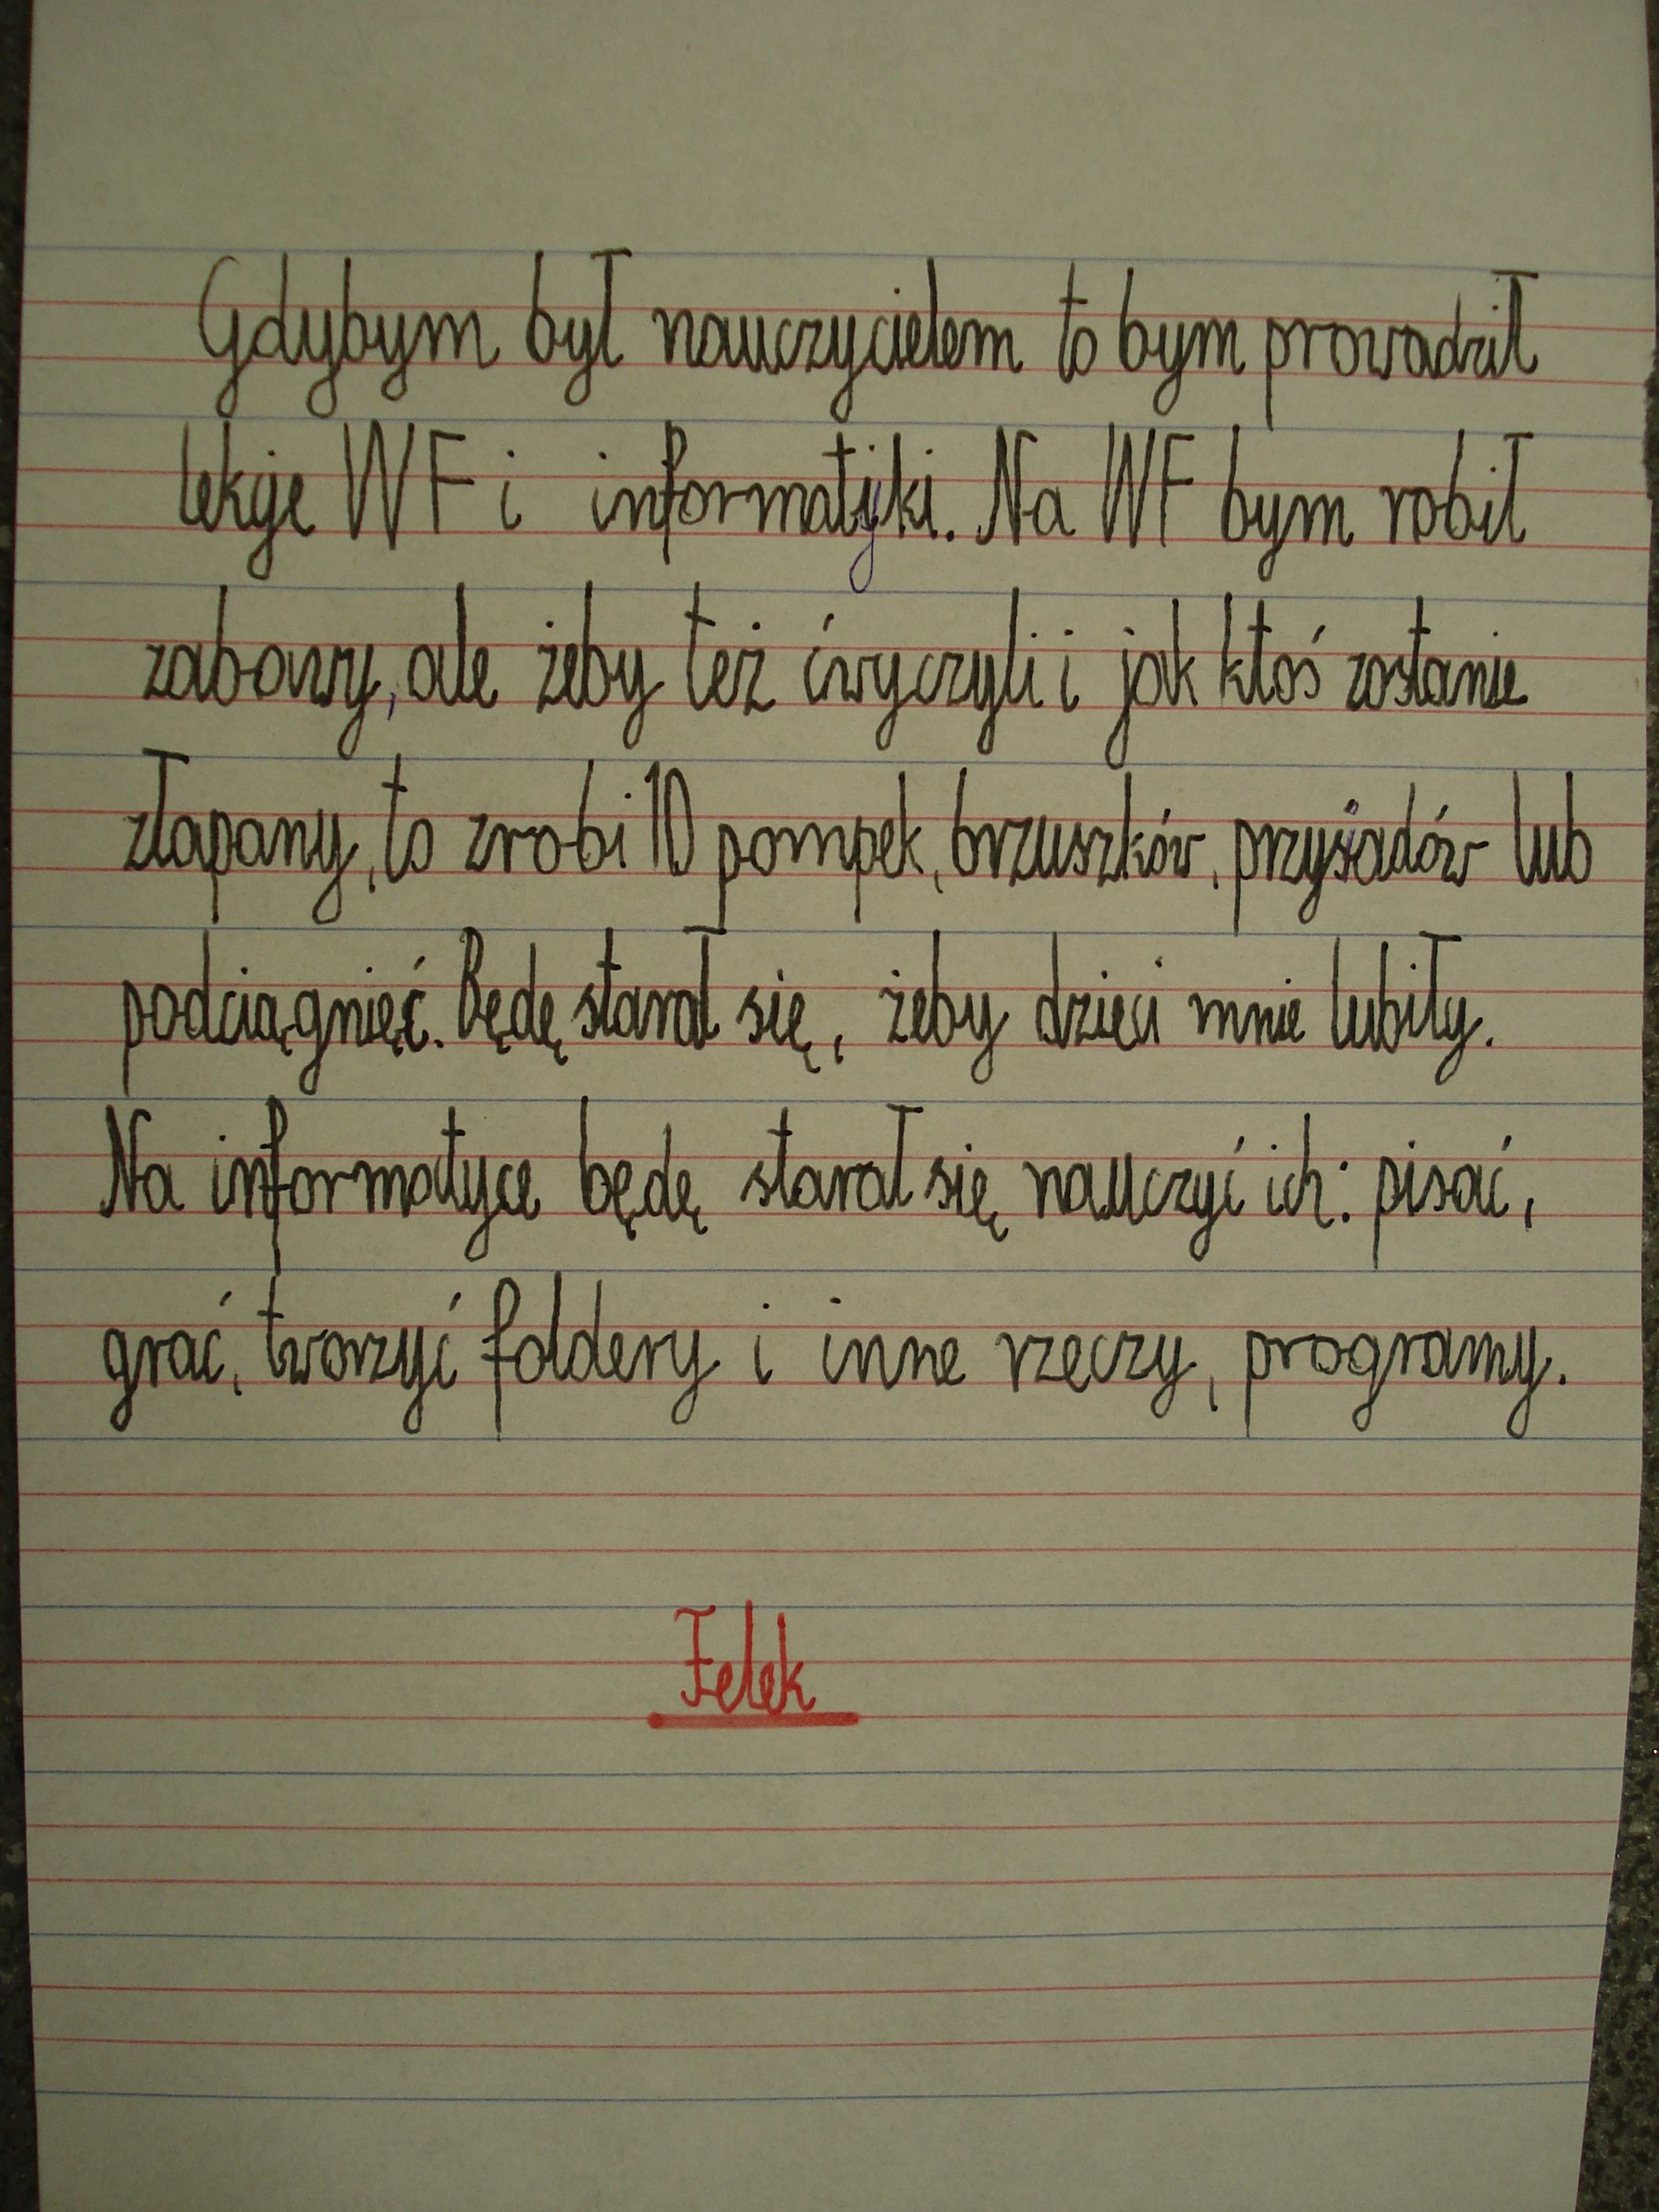 Gdybym był nauczycielem to bym prowadził
lekcje WF i informatyki. Na WF bym robił
zabawy, ale żeby też ćwyczyli i jak ktoś zostanie
złapany, to zrobi 10 pompek, brzuszków, przysiadów lub
podciągnięć. Będę starał się, żeby dzieci mnie lubiły.
Na informatyce będę starał się nauczyć ich: pisać,
grać, tworzyć foldery i inne rzeczy, programy.
Felek